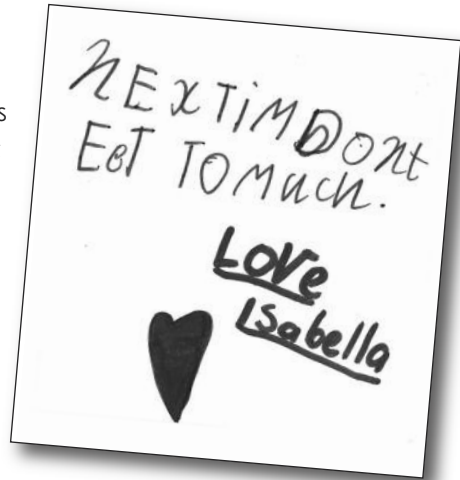 s
NEXTiMDONt
EET TO MUCH.
LOVe
ISabella